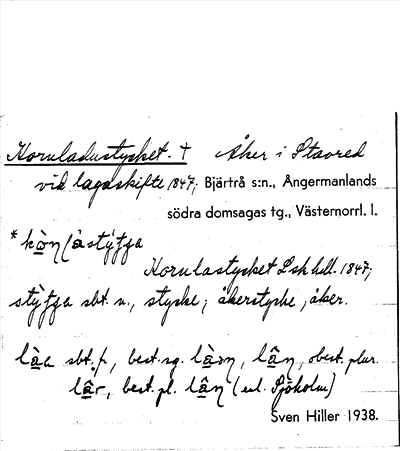 Kornladustycket. † Åker i Stavred
vid lagaskifte 1847; Bjärtrå s:n., Ångermanlands
södra domsagas tg., Västernorrl. l.
Kornlastycket Lskhdl. 1847;
sbt. n., stycke; åkerstycke; åker.
sbt. f., best. sg. obest. plur.
best. pl. (enl. Sjöholm)
Sven Hiller 1938.